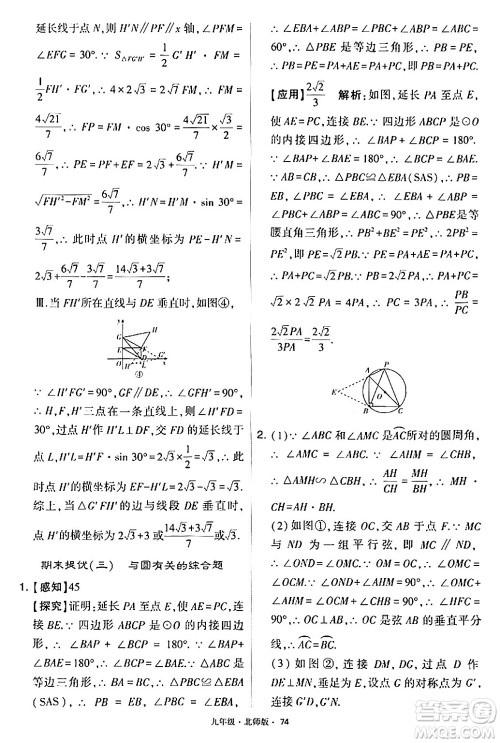 延长线于点 N,则 H′N∥PM∥x 轴,∴∠PFM=
∠EFG=30°.∵S△FG′H′=1/2 G′H′·FJ=
1/2 FH′·FG′,∴4×2√3=2√7 FM,∴FM=
4√21/7,∴FP=FM·cos 30°=4√21/7×√3/2=
6√7/7,∴PE=PF+EF=2√3+6√7/7,∵H′M=
√(FH′²-FM²)=6√7/7,∴H′N=H′M·sin 30°=
3√7/7,∴此时点 H′的横坐标为 PE-H′N=
2√3+6√7/7-3√7/7=(14√3+3√7)/7;
Ⅲ.当 FH′所在直线与 DE 垂直时,如图④,
④
∵∠H′FG′=∠HFG=90°,GF∥DE,∴∠GFH′
=90°,∴H,F,H′三点在一条直线上,∴∠H′FD=
30°,过点 H′作 H′L⊥DE 交 DE 的延长线于点
L,∴H′L=FH′·sin 30°=2√3×1/2=√3,∴此时
点 H′的横坐标为 EF+H′L=2√3+√3=3√3.
综上,当△G′FH′的边与线段 DE 垂直时,
点 H′的横坐标为 2√3+3或(14√3+3√7)/7或 3√3.
期末提优(三) 与圆有关的综合题
1.【感知】45
【探究】证明:延长 PA 至点 E,使 AE=PC,连接
BE.∵四边形 ABCP 为⊙O 的内接四边形,
∴∠BAP+∠BCP=180°,∵∠BAP+∠BAE=
180°,∴∠BCP=∠BAE.∵△ABC 是等边三角
形,∴BA=BC.∵PC=AE,∴△PBC≌△EBA
(SAS),∴PB=EB,∠PBC=∠EBA.
∴∠EBA+∠ABP=∠PBC+∠ABP=∠ABC=
60°,∴△PBE 是等边三角形,∴PB=PE.∵PE
=PA+AE=PA+PC,∴PB=PA+PC.
【应用】2√2/3 解析:如图,延长 PA 至点 E,使
AE=PC,连接 EB.∵四边形 ABCP 是⊙O
的内接四边形,∴∠BAP+∠BCP=180°.
∵∠BAP+∠BAE=180°,∴∠BCP=∠BAE.
∵AB=CB,∴△PBC≌△EBA(SAS),∴PB=
EB,∠PBC=∠EBA,∴∠EBA+∠ABP=∠PBC
+∠ABP=∠ABC=90°,∴△PBE 是等
腰直角三角形,∴PB²+BE²=PE²,∴2PB²=
PE²,∴PE=√2 PB.∵PE=PA+AE=PA+PC,
∴PA+PC=√2 PB.∵PB=2√2 PA,∴PA+PC=
√2×2√2 PA=4PA,∴PC=3PA,∴PB/PC=
2√2PA/3PA=2√2/3.
2.(1)∵∠ABC 和∠AMC 是A͡C所对的圆周角,
∴∠AMC=∠ABC,∵∠AHM=∠CHB,
∴△AMH∽△CBH,∴AH/CH=MH/BH,∴AH·BH
=MH·CH.
(2)如图①,连接 OC,OB.∵直线 OM 与
CD 为一组平行线,∴∠OND=∠MOC,
∵∠OND=90°,∴∠MOC=90°.∵∠AMC=
∠ABC,∠OMC=∠ABC,∴∠AMC=∠OMC,
∴∠AOC=90°,∴直线 OM 是 AB 的垂直平分
线,∴A͡C=B͡C.
(3)如图②,连接 DM,DG,过点 D 作
DJ⊥MG,交 MG 于点 J.∵∠DNB=90°,
九年级·北师版·74